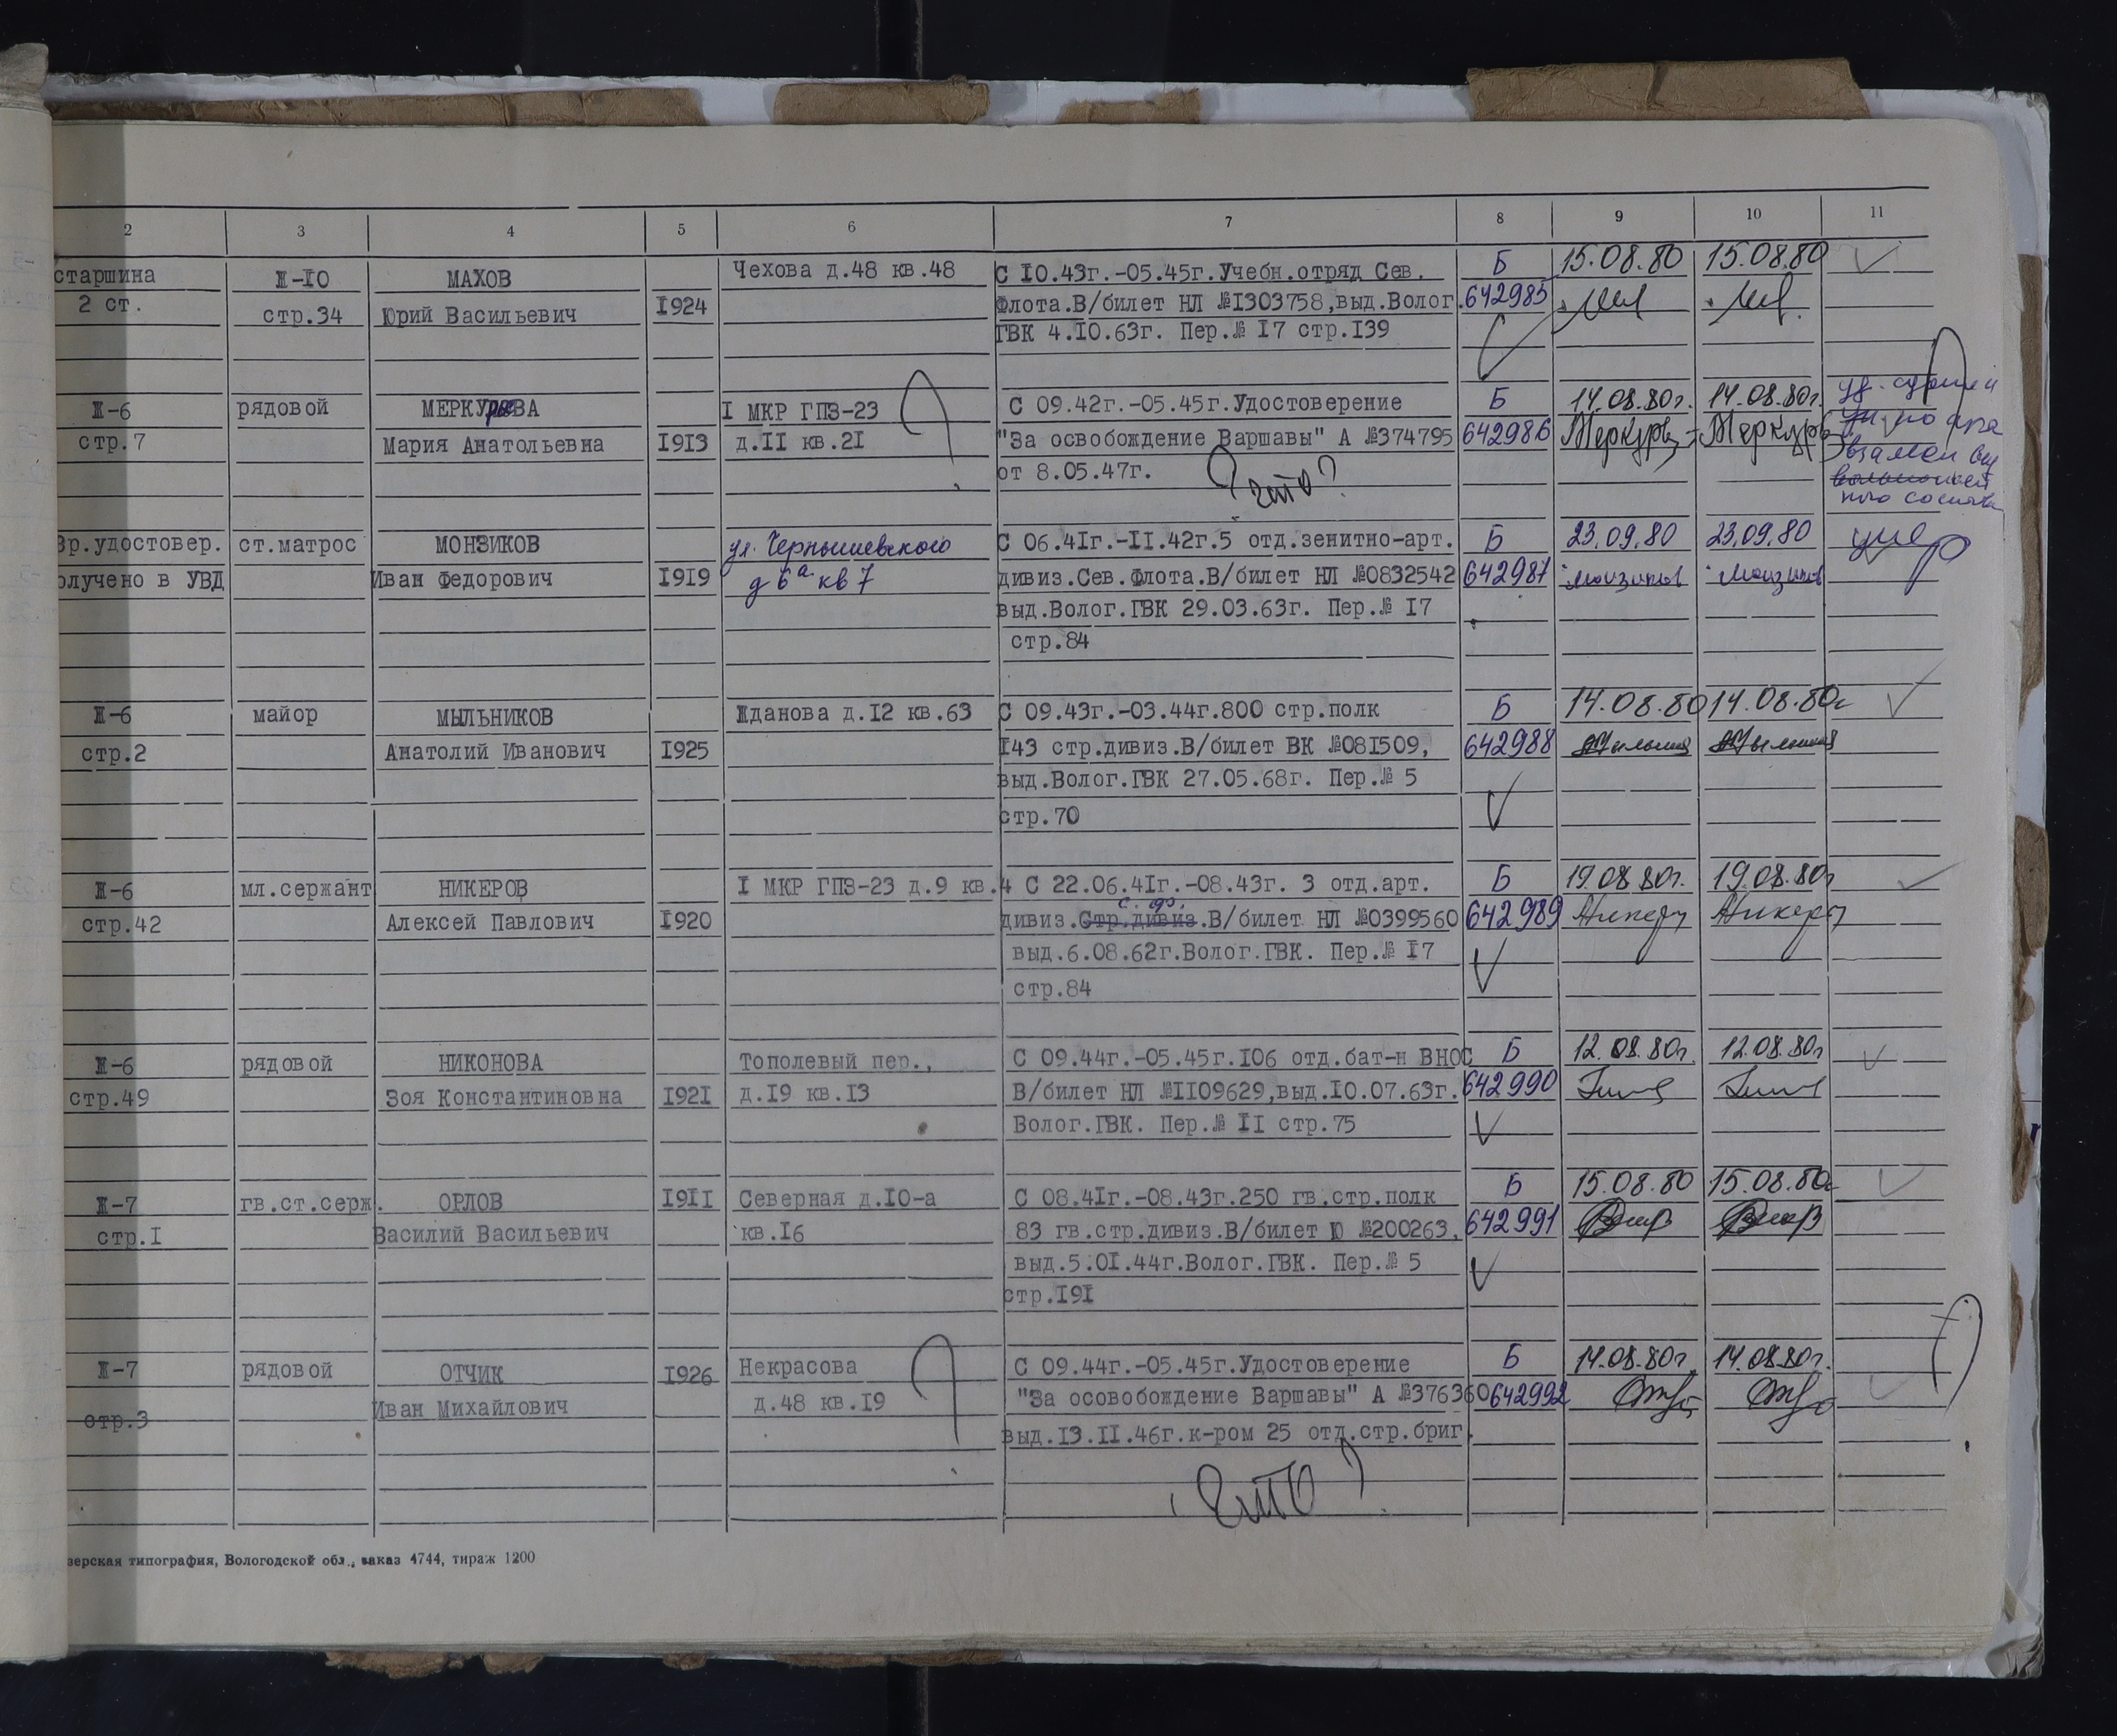 2 3 4 5 6 7 8 9 10 11
старшина Ж-10 МАХОВ Чехова д.48 кв.48 С 10.43г.-05.45г.Учебн.отряд Сев. Б 15.08.80 15.08.80
2 ст. стр.34 Юрий Васильевич 1924 Флота.В/билет НЛ №1303758,выд.Волог. 642985
ГВК 4.10.63г. Пер.№ 17 стр.139
Ж-6 рядовой МЕРКУРЬЕВА 1 МКР ГПЗ-23 С 09.42г.-05.45г.Удостоверение Б 14.08.80г. 14.08.80г.
стр.7 Мария Анатольевна 1913 д.11 кв.21 "За освобождение Варшавы" А №374795 642986 Меркурь Меркурь
от 8.05.47г.
что?
взамен
Вр.удостовер. ст.матрос МОНЗИКОВ ул. Чернышевского С 06.41г.-11.42г.5 отд.зенитно-арт. Б 23.09.80 23.09.80 умер
олучено в УВД Иван Федорович 1919 д 6а кв 7 дивиз.Сев.Флота.В/билет НЛ №0832542 642987 Монзиков Монзиков
выд.Волог.ГВК 29.03.63г. Пер.№ 17
стр.84
Ж-6 майор МЫЛЬНИКОВ Жданова д.12 кв.63 С 09.43г.-03.44г.800 стр.полк Б 14.08.80 14.08.80г
стр.2 Анатолий Иванович 1925 143 стр.дивиз.В/билет ВК №081509, 642988
выд.Волог.ГВК 27.05.68г. Пер.№ 5
стр.70
Ж-6 мл.сержант НИКЕРОВ 1 МКР ГПЗ-23 д.9 кв.4 С 22.06.41г.-08.43г. 3 отд.арт. Б 19.08.80г. 19.08.80г
стр.42 Алексей Павлович 1920 дивиз.Стр.дивиз.В/билет НЛ №0399560 642989 Никеру Никеру
выд.6.08.62г.Волог.ГВК. Пер.№ 17
стр.84
Ж-6 рядовой НИКОНОВА Тополевый пер., С 09.44г.-05.45г.106 отд.бат-н ВНОС Б 12.08.80г. 12.08.80г
стр.49 Зоя Константиновна 1921 д.19 кв.13 В/билет НЛ №1109629,выд.10.07.63г. 642990
Волог.ГВК. Пер.№ 11 стр.75
Ж-7 гв.ст.серж. ОРЛОВ 1911 Северная д.10-а С 08.41г.-08.43г.250 гв.стр.полк Б 15.08.80 15.08.80г
стр.1 Василий Васильевич кв.16 83 гв.стр.дивиз.В/билет Ю №200263, 642991
выд.5.01.44г.Волог.ГВК. Пер.№ 5
стр.191
Ж-7 рядовой ОТЧИК 1926 Некрасова С 09.44г.-05.45г.Удостоверение Б 14.08.80г. 14.08.80г.
стр.3 Иван Михайлович д.48 кв.19 "За осовобождение Варшавы" А №376360 642992
выд.13.11.46г.к-ром 25 отд.стр.бриг.
что?
зерская типография, Вологодской обл., заказ 4744, тираж 1200